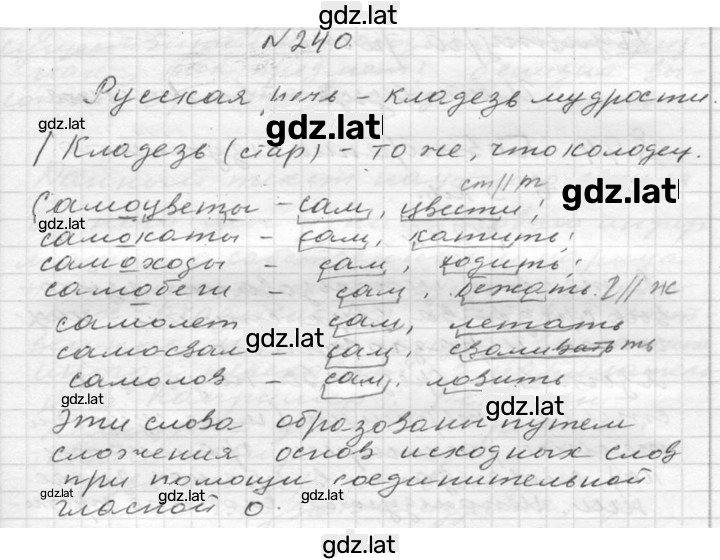 gdz.lat
№240.
Русская печь – кладезь мудрости.
gdz.lat
gdz.lat
Кладезь (стар) – то же, что колодец.
ст//т
gdz.lat
Самоцветы – сам, цвести;
gdz.lat
самокаты – сам, катить;
самоходы – сам, ходить;
самобеги – сам, бежать. г//ж
самолет сам, летать
gdz.lat
самосвал – сам, сваливать
самолов – сам, ловить
gdz.lat
gdz.lat
Эти слова образованы путем
сложения основ исходных слов
при помощи соединительной
gdz.lat
gdz.lat
гласной о.
gdz.lat